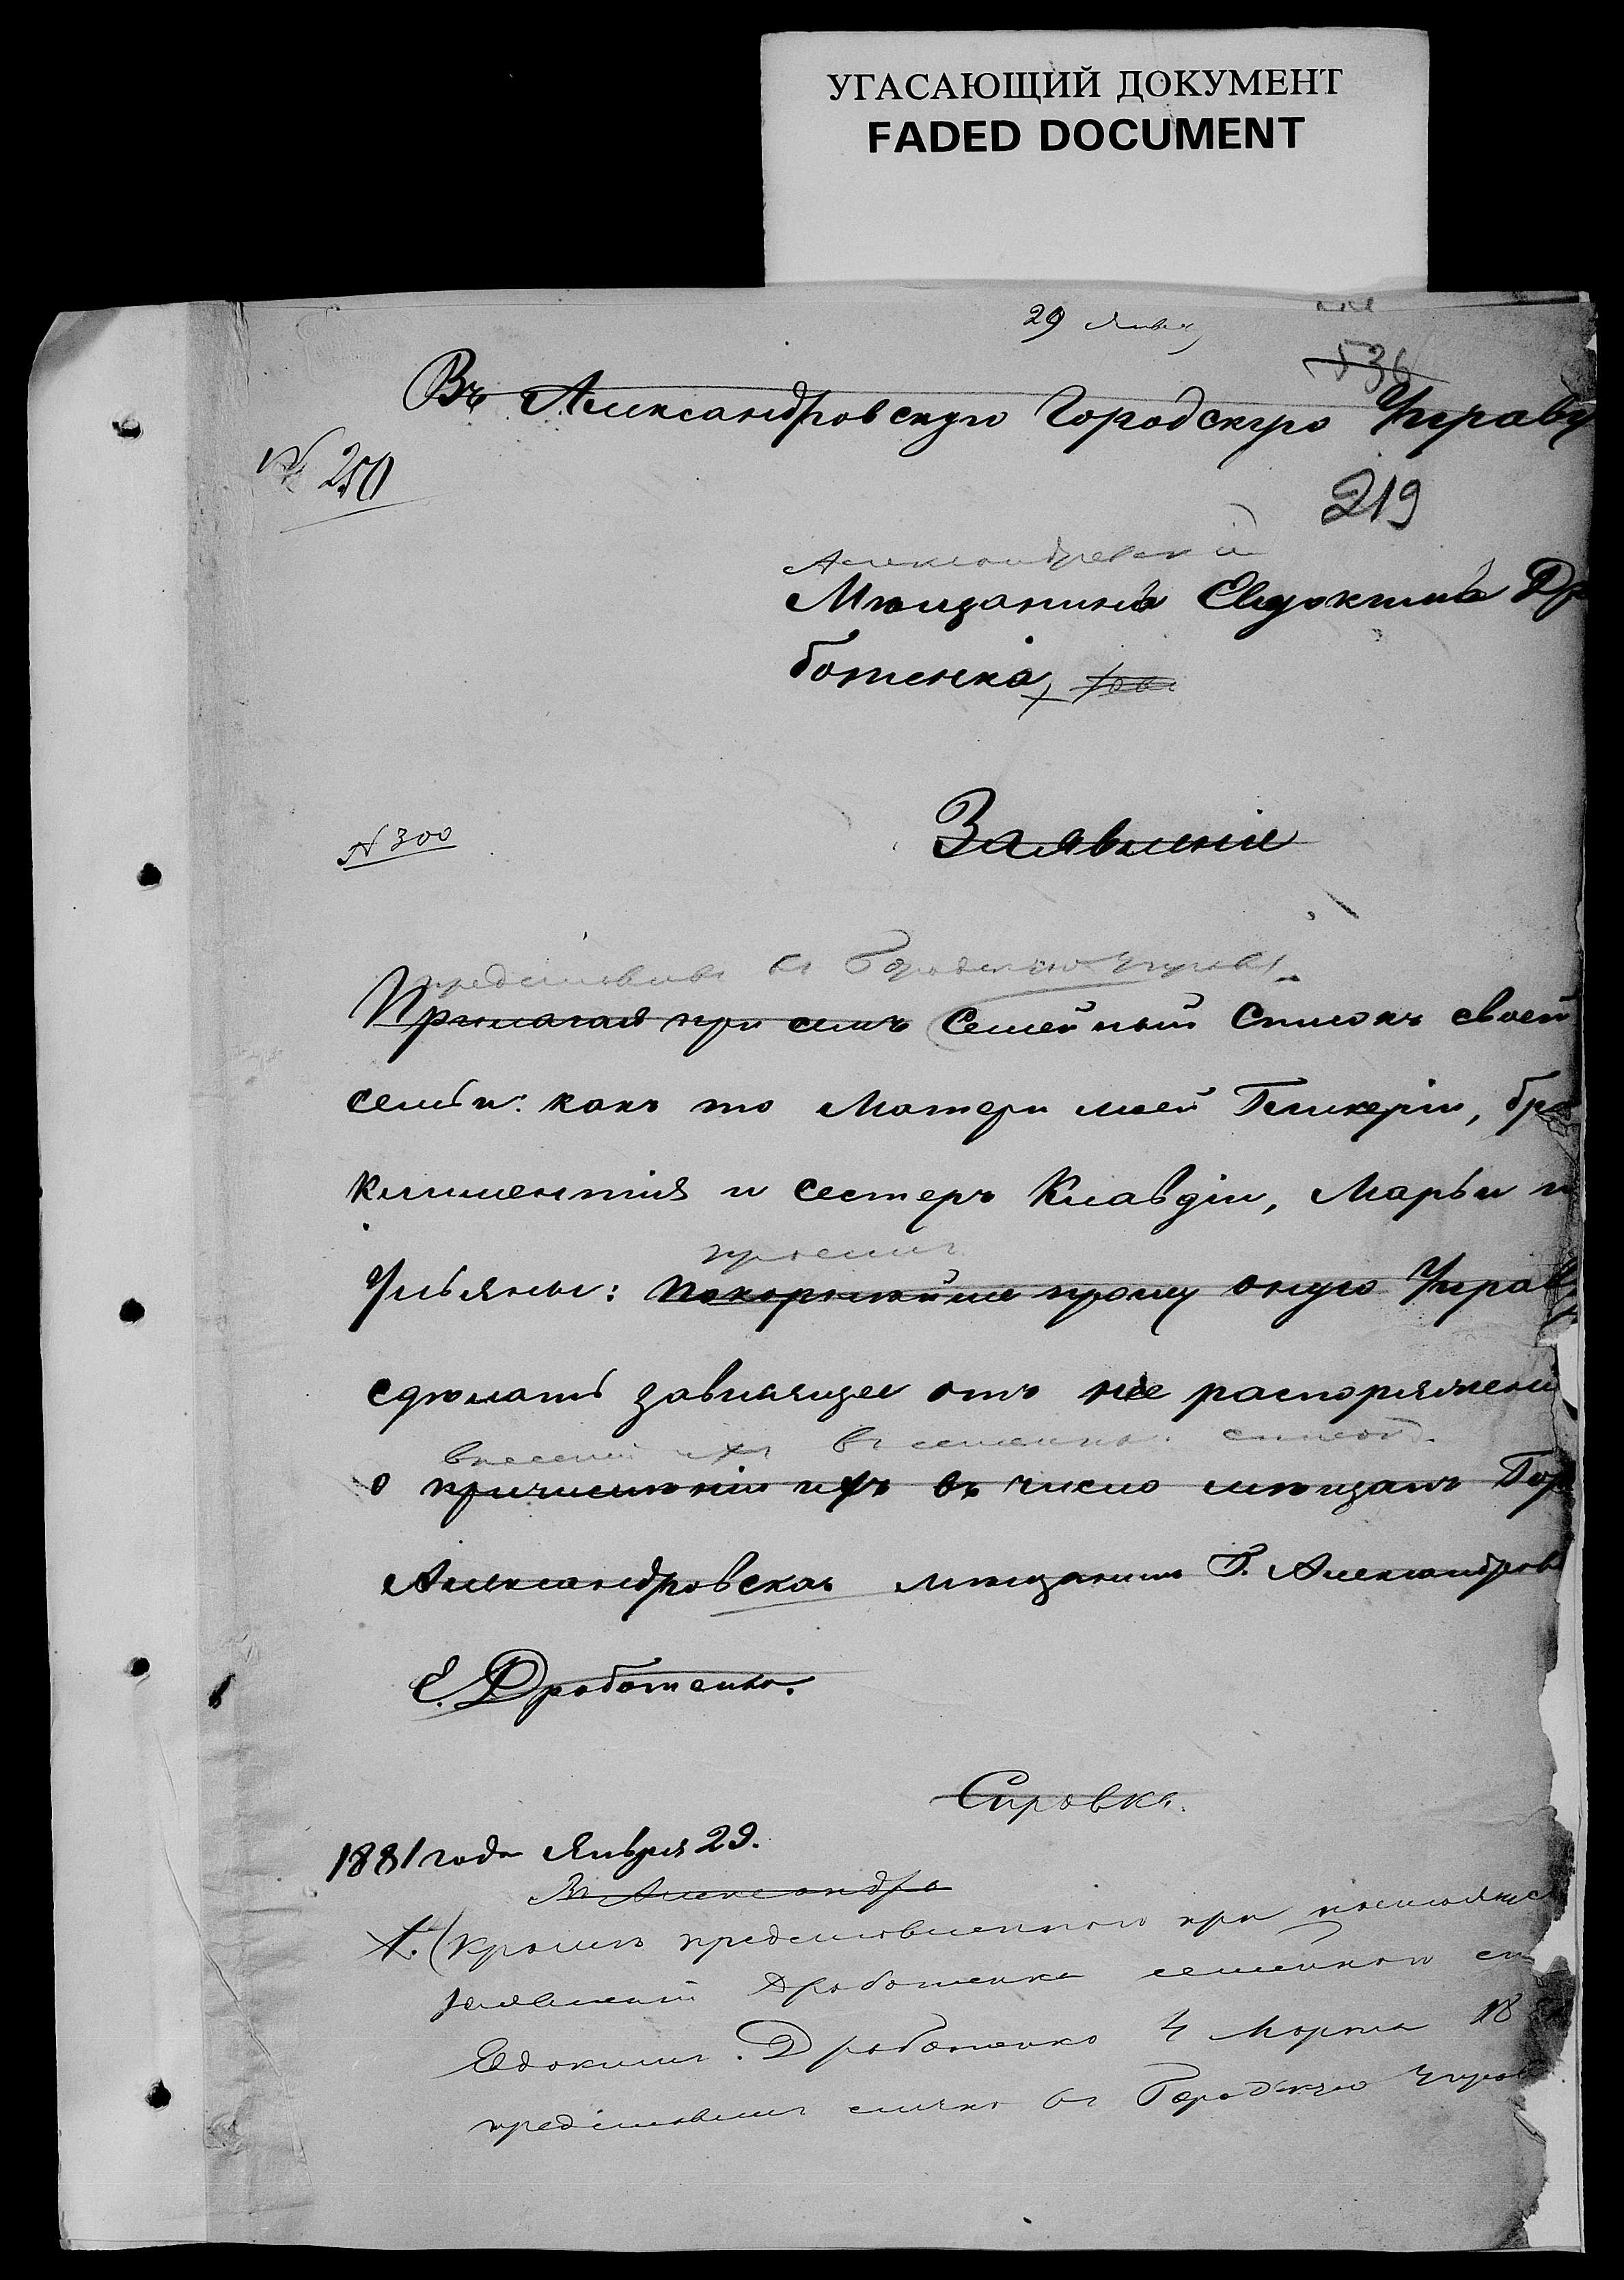 УГАСАЮЩИЙ ДОКУМЕНТ
FADED DOCUMENT
29 Янва
536
Въ Александровскую Городскую Управу
№ 250
219
Александровскій
Мѣщанина Евдокима Дро
ботенка
№ 300
Заявленіе
представивъ въ Городскую Управу
Прилагая при семъ Семейный Списокъ своей
семьи: какъ то Матери моей Гликеріи, бра
Климентія и сестеръ Клавдіи, Марьи и
проситъ
Ульяны: покорнѣйше прошу оную Управу
сдѣлать зависящее отъ нее распоряжені
внесеніи ихъ въ семейный списокъ
о причисленіи ихъ въ число мѣщанъ Гор
Александровска мѣщанинъ Г. Александров
Е. Дработенко.
Справка.
1881 года Января 29.
Александро
1. (кромѣ представленнаго при
заявленіи Дработенка семейнаго сп
Евдокимъ Дработенко 4 Марта 18
представилъ въ Городскую Управ